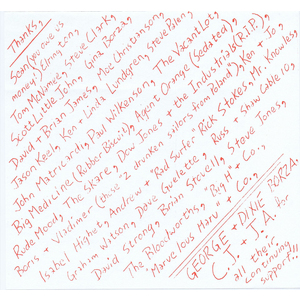 Thanks,
Scott (you owe us
money) Elrington,
Tom McNamet, Steve Clark,
Scott Little John, Gina Borza,
David + Brian James, Moe Christianson,
Jason Keel, Ken + Linda Lundgren, Steve
John Matricardi, Paul Wilkenson, The Vacant Lot,
Big Medicine (Rubber Biscuit), Agent Orange (Sedated),
Rude Mood, The Skare, Dow Jones + the Industrials (R.I.P.),
Boris + Vladimer (those 2 drunken sailors from Poland), Ken + Jo,
Isabel Highet, Andrew + "Rad Surfer" Rick Stokes, Mr. Knowles,
Graham Watson, Dave Guelette, Russ + Shaw Cable 10,
David Strong, Brian Steele, Steve Jones,
The Bloodworths, "Big H" + Co.,
"Marvelous Marv" + Co.,
GEORGE + DIVE BORZA.
C.J. + J.A. for
all their
continuing
support!!